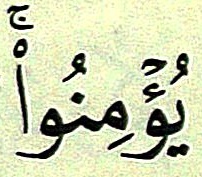 يُؤۡمِنُواْۚ